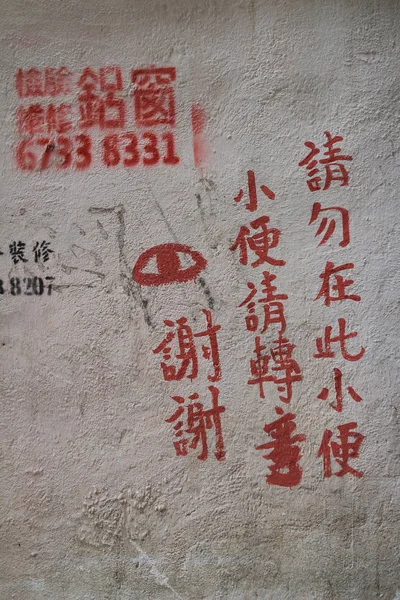 檢驗
維修
鋁窗
6733 8331
裝修
8207
請勿在此小便
小便請轉
謝謝